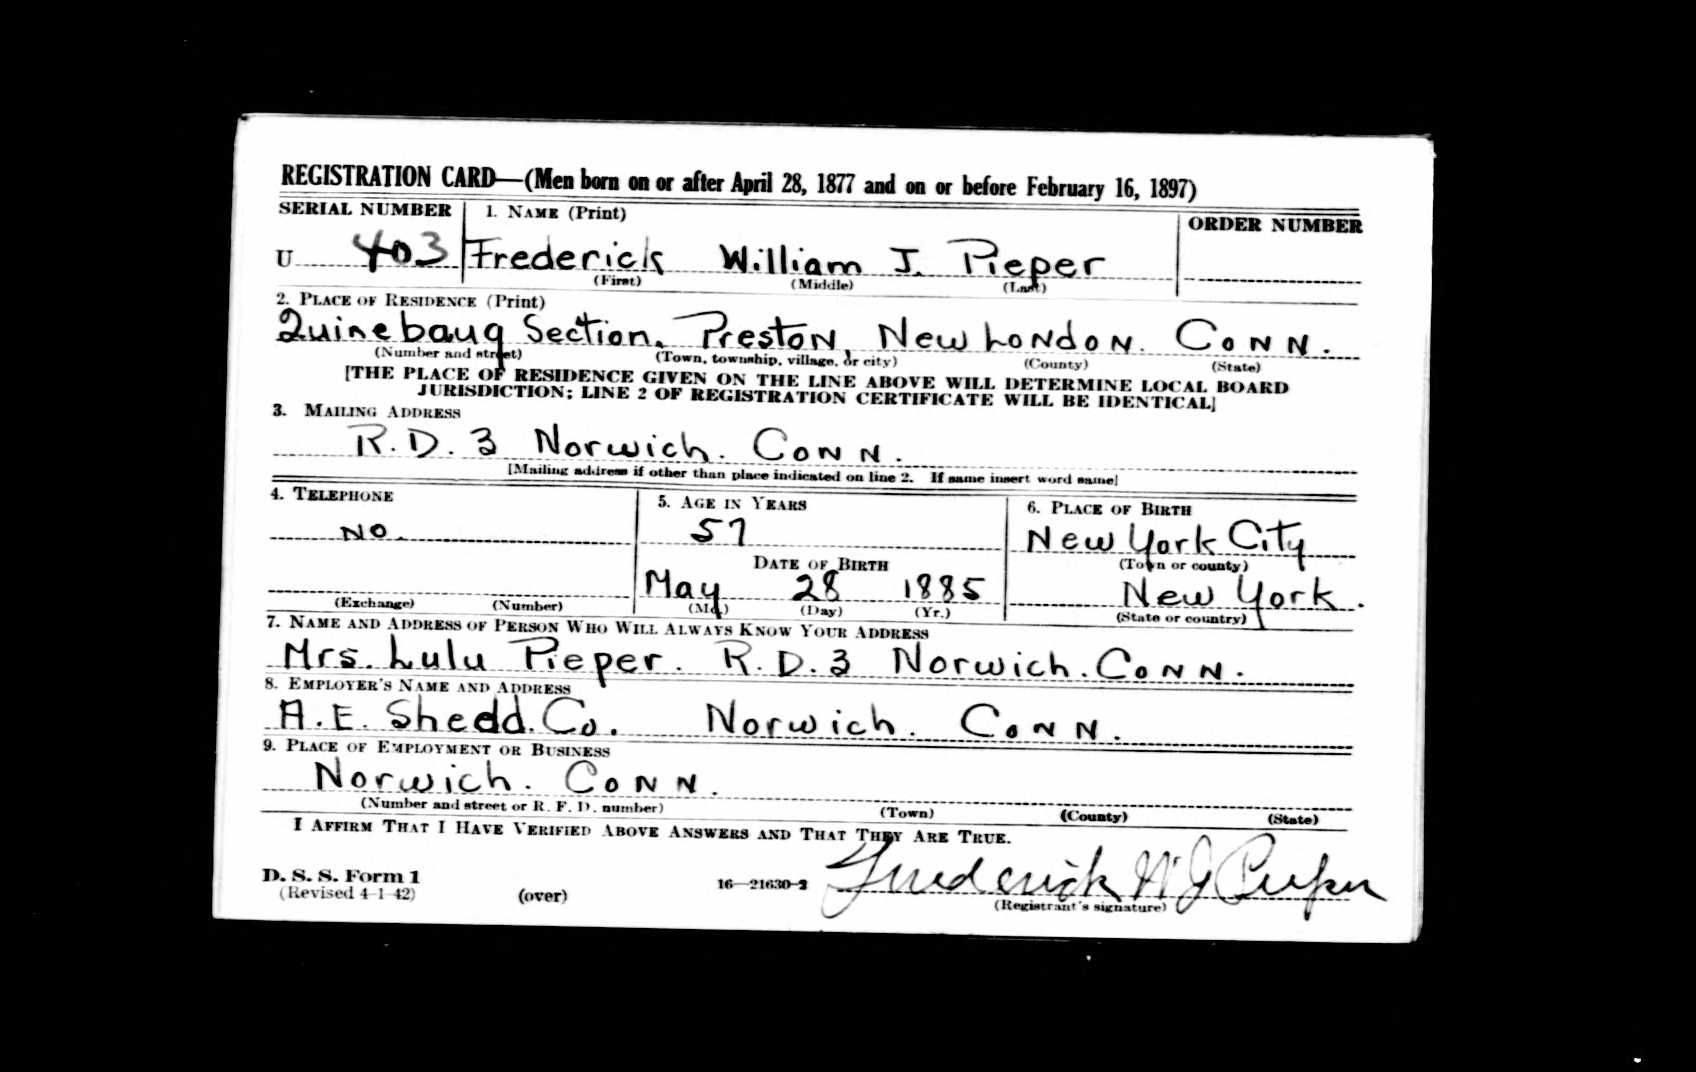 REGISTRATION CARD—(Men born on or after April 28, 1877 and on or before February 16, 1897)
SERIAL NUMBER 1. NAME (Print) ORDER NUMBER
U 403 Frederick William J. Pieper
(First) (Middle) (Last)
2. PLACE OF RESIDENCE (Print)
Quinebaug Section, Preston, New London. Conn.
(Number and street) (Town, township, village, or city) (County) (State)
[THE PLACE OF RESIDENCE GIVEN ON THE LINE ABOVE WILL DETERMINE LOCAL BOARD
JURISDICTION; LINE 2 OF REGISTRATION CERTIFICATE WILL BE IDENTICAL]
3. MAILING ADDRESS
R.D. 3 Norwich. Conn.
[Mailing address if other than place indicated on line 2. If same insert word same]
4. TELEPHONE 5. AGE IN YEARS 6. PLACE OF BIRTH
No. 57 New York City
DATE OF BIRTH (Town or county)
May 28 1885 New York.
(Exchange) (Number) (Mo.) (Day) (Yr.) (State or country)
7. NAME AND ADDRESS OF PERSON WHO WILL ALWAYS KNOW YOUR ADDRESS
Mrs. Lulu Pieper. R.D. 3 Norwich. Conn.
8. EMPLOYER'S NAME AND ADDRESS
A.E. Shedd. Co. Norwich. Conn.
9. PLACE OF EMPLOYMENT OR BUSINESS
Norwich. Conn.
(Number and street or R. F. D. number) (Town) (County) (State)
I AFFIRM THAT I HAVE VERIFIED ABOVE ANSWERS AND THAT THEY ARE TRUE.
D. S. S. Form 1
(Revised 4-1-42) (over) 16—21630-2 Frederick W J Pieper
(Registrant's signature)